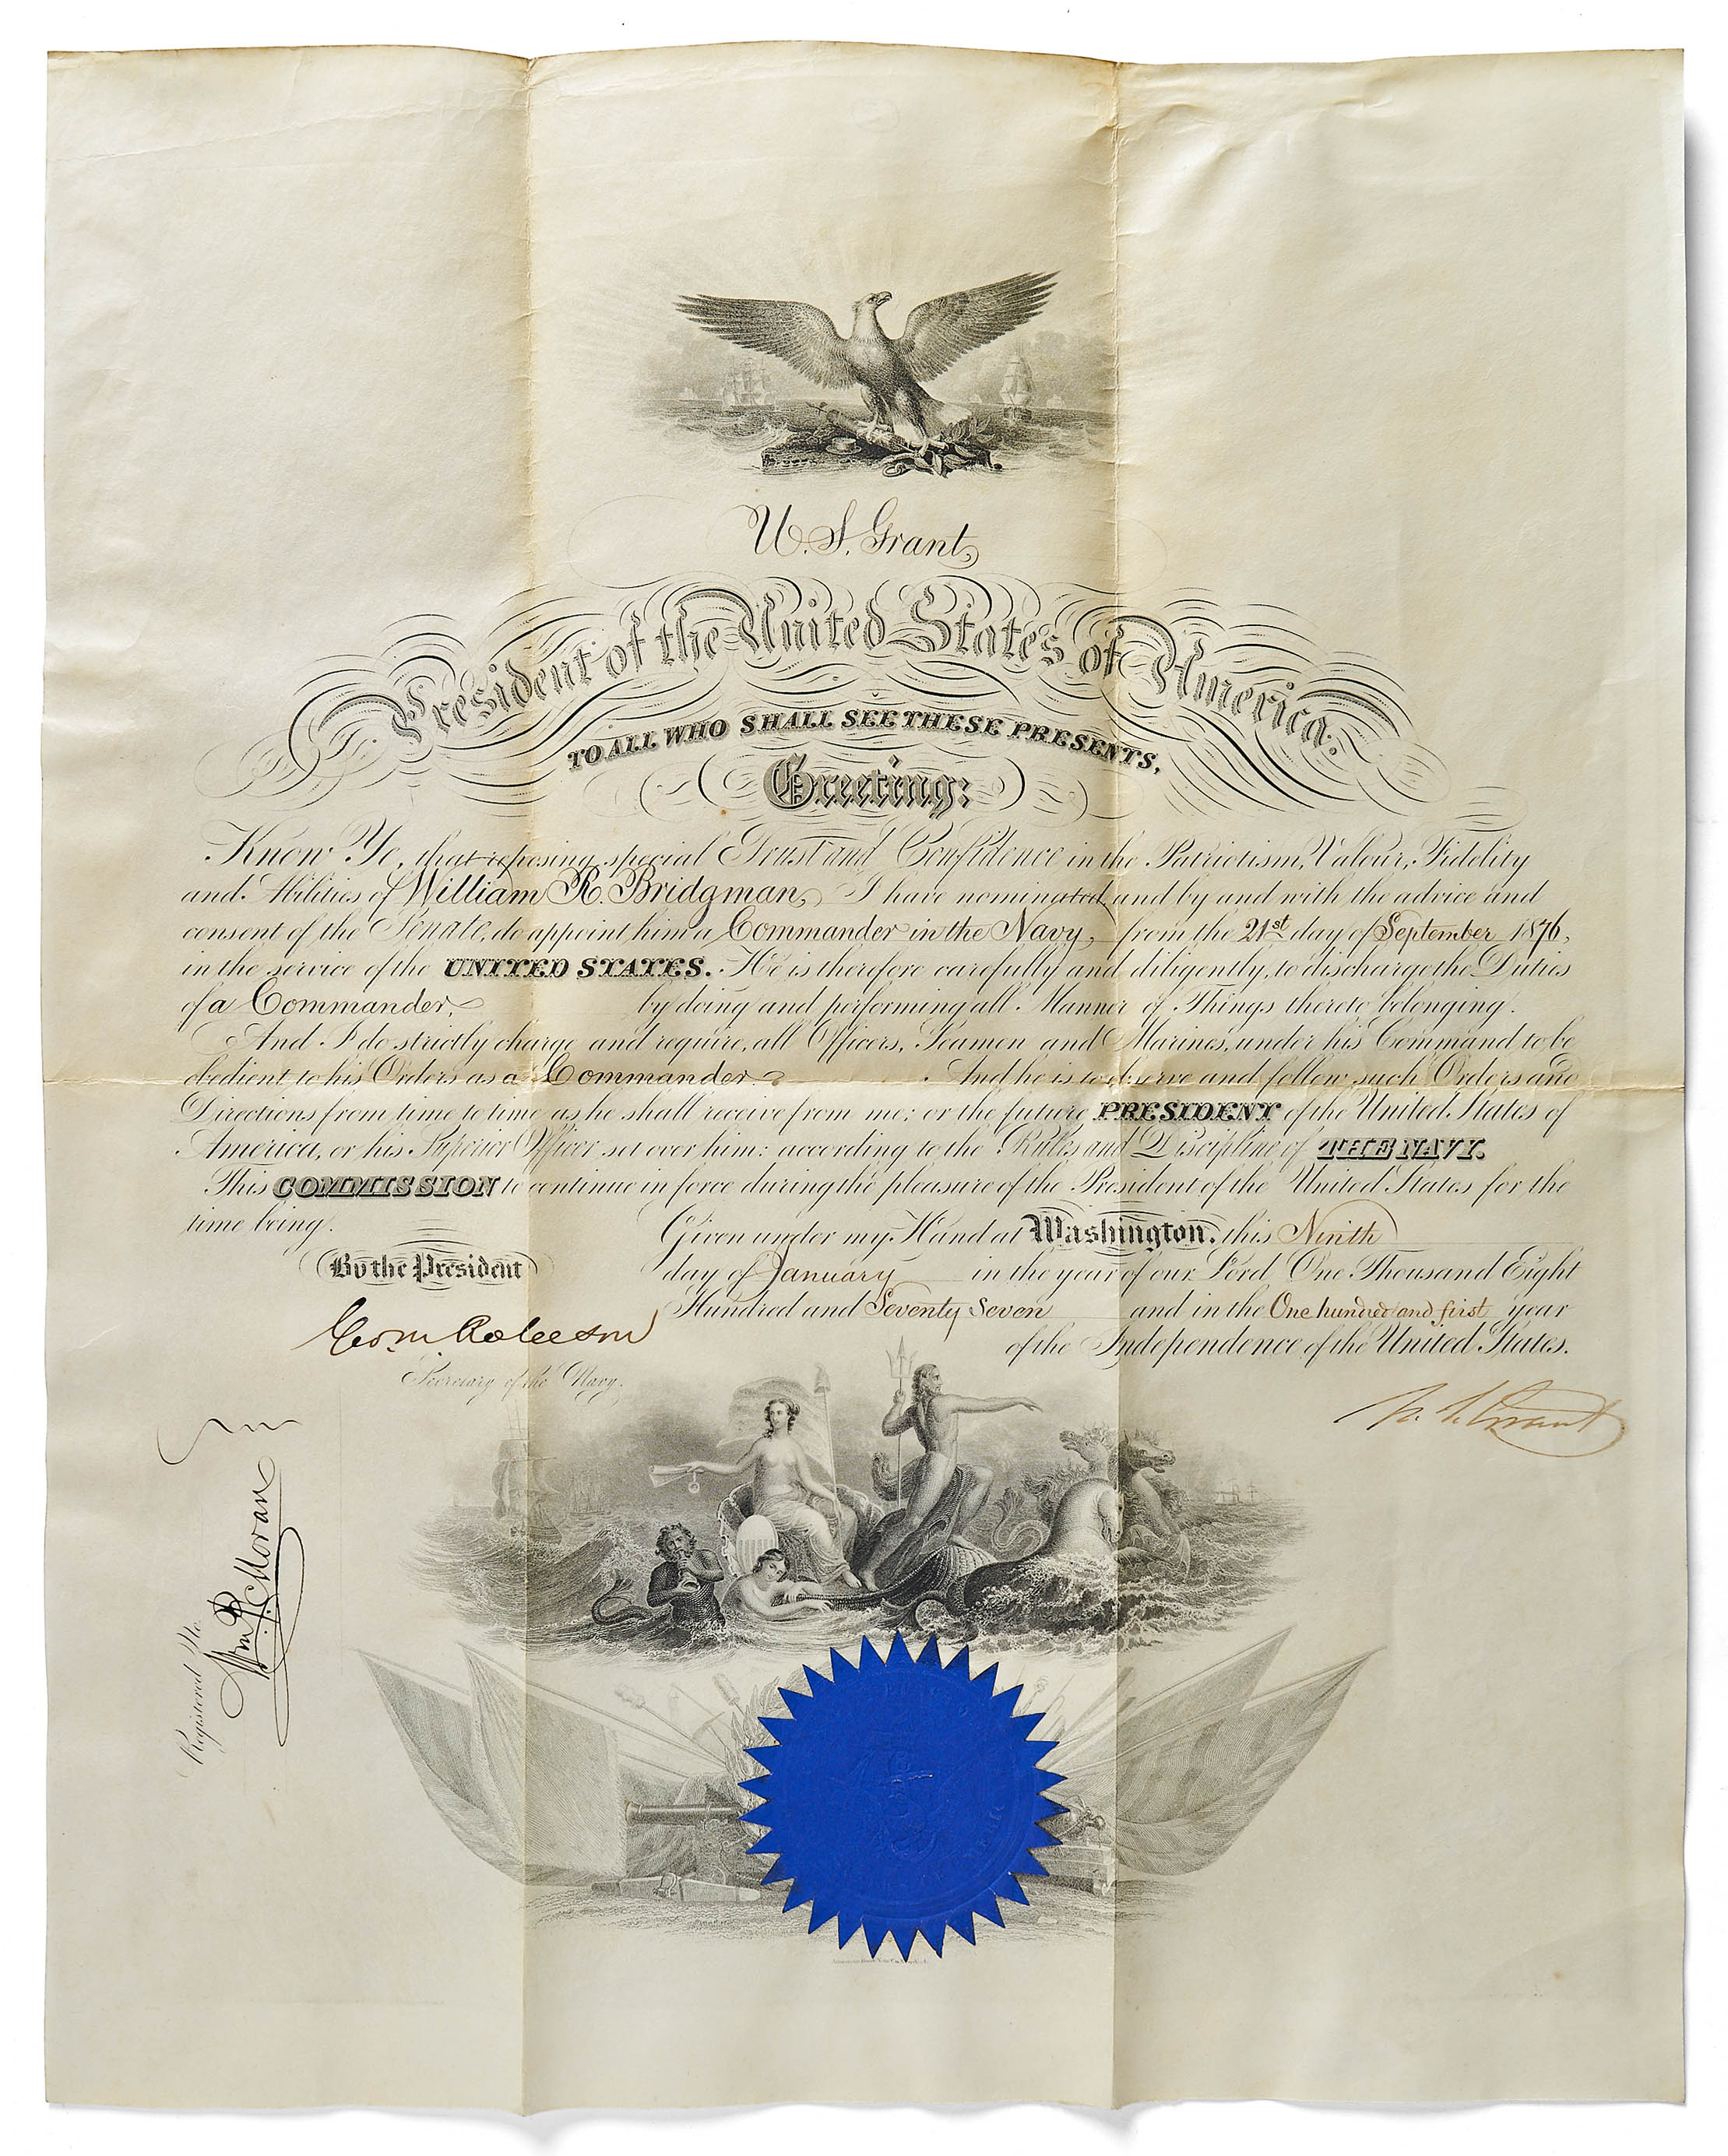 U. S. Grant,
President of the United States of America.
TO ALL WHO SHALL SEE THESE PRESENTS,
Greeting:
Know Ye, that reposing special Trust and Confidence in the Patriotism, Valour, Fidelity
and Abilities of William R. Bridgman, I have nominated and by and with the advice and
consent of the Senate, do appoint him a Commander in the Navy, from the 21st day of September 1876,
in the service of the UNITED STATES. He is therefore carefully and diligently, to discharge the Duties
of a Commander, by doing and performing all Manner of Things thereto belonging.
And I do strictly charge and require, all Officers, Seamen and Marines, under his Command to be
obedient to his Orders as a Commander. And he is to observe and follow such Orders and
Directions from time to time as he shall receive from me; or the future PRESIDENT of the United States of
America, or his Superior Officer set over him: according to the Rules and Discipline of THE NAVY.
This COMMISSION to continue in force during the pleasure of the President of the United States for the
time being.
Given under my Hand at Washington, this Ninth
day of January in the year of our Lord One Thousand Eight
Hundred and Seventy Seven and in the One hundred and first year
of the Independence of the United States.
By the President
Geo. M. Robeson
Secretary of the Navy.
U. S. Grant
Registered No.
Wm. P. Moran